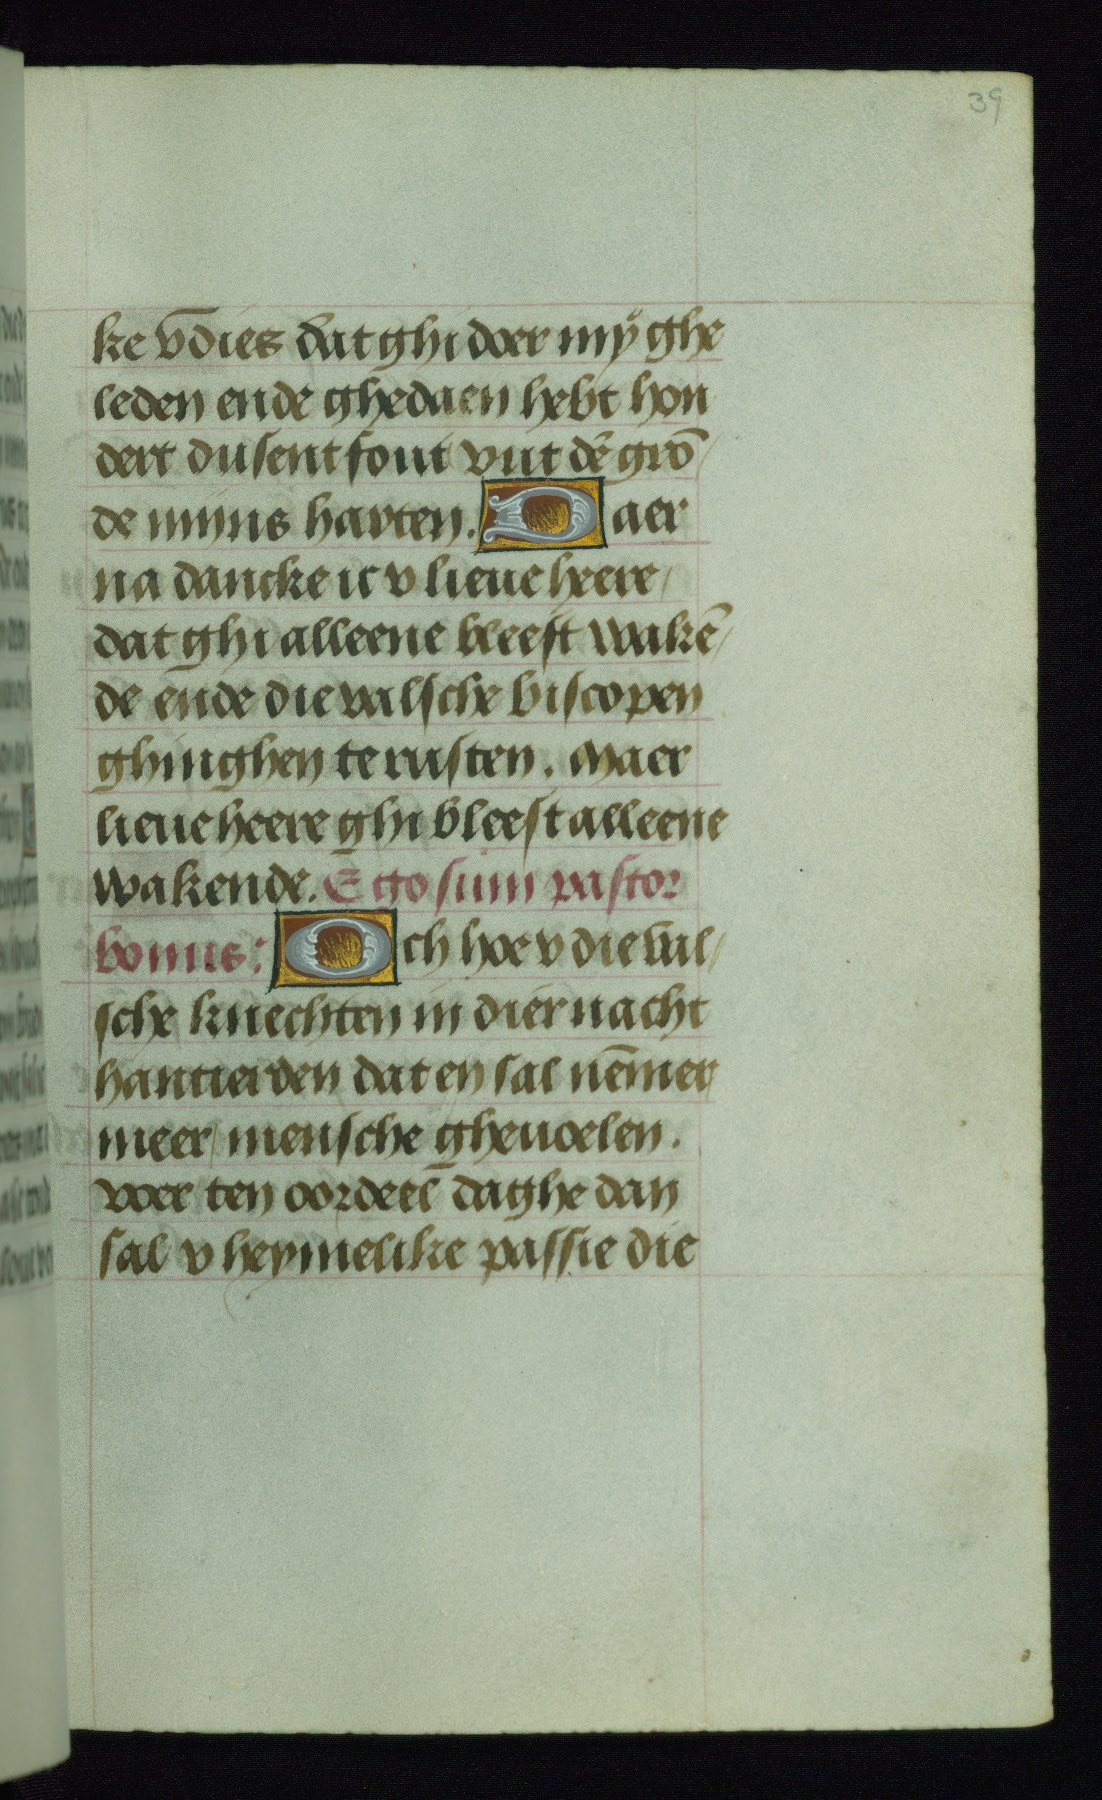 39
ke v̄dies dat ghi doer mÿ ghe
leden ende ghedaen hebt hon
dert dusent fout vut dē gro̅
de mijns harten. Daer
na dancke ic v lieue heere/
dat ghi alleene bleeft wakē/
de ende die valsche biscopen
ghinghen te rusten. Maer
lieue heere ghi bleeft alleene
wakende. Ego sum pastor
bonus: Och hoe v die val/
sche knechten in dier nacht
hantierden dat en sal nēmer
meer mensche gheuoelen.
voer ten oordeel daghe dan
sal v heymelike passie die